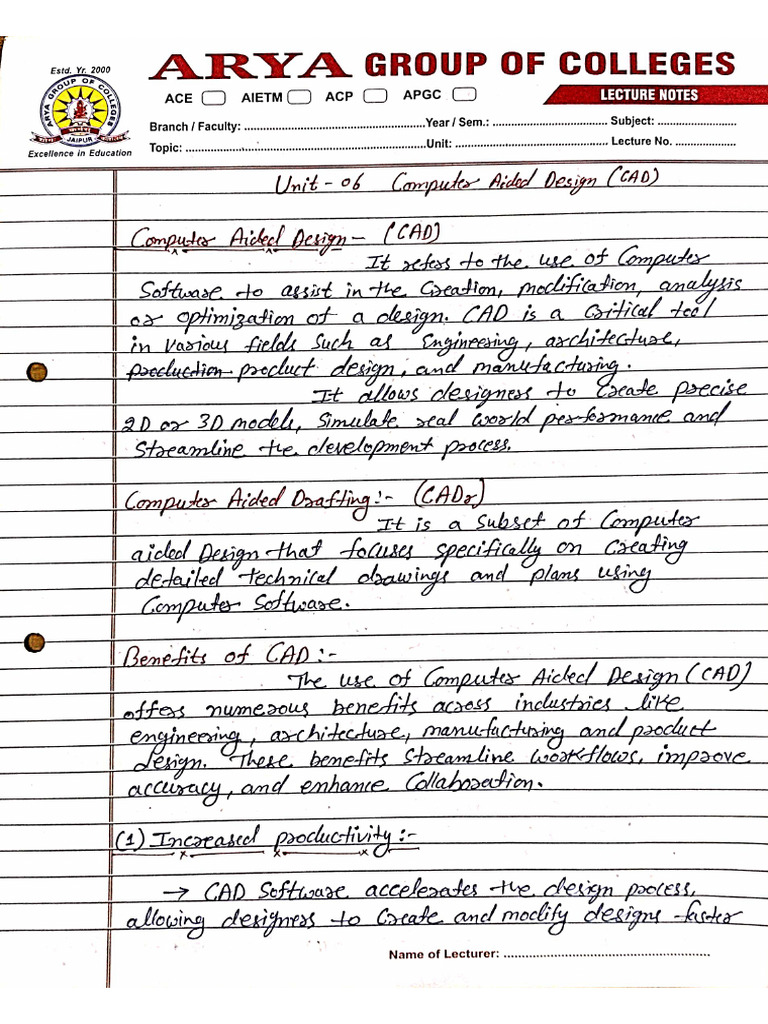 Estd. Yr. 2000
ARYA GROUP OF COLLEGES
ARYA GROUP OF COLLEGES
JAIPUR
Excellence in Education
ACE AIETM ACP APGC
LECTURE NOTES
Branch / Faculty: ................................ Year / Sem.: ................................ Subject: ........................
Topic: ................................ Unit: ................................ Lecture No. ....................
Unit - 06 Computer Aided Design (CAD)
Computer Aided Design - (CAD)
It refers to the use of Computer
Software to assist in the Creation, modification, analysis
or optimization of a design. CAD is a Critical tool
in various fields such as Engineering, architecture,
production product design, and manufacturing.
It allows designers to Create precise
2D or 3D models, Simulate real world performance and
Streamline the development process.
Computer Aided Drafting:- (CADr)
It is a Subset of Computer
aided Design that focuses specifically on Creating
detailed technical drawings and plans using
Computer Software.
Benefits of CAD:-
The use of Computer Aided Design (CAD)
offers numerous benefits across industries like
engineering, architecture, manufacturing and product
design. These benefits Streamline workflows, improve
accuracy, and enhance Collaboration.
(1) Increased productivity:-
→ CAD Software accelerates the design process,
allowing designers to Create and modify designs faster
Name of Lecturer: ................................................